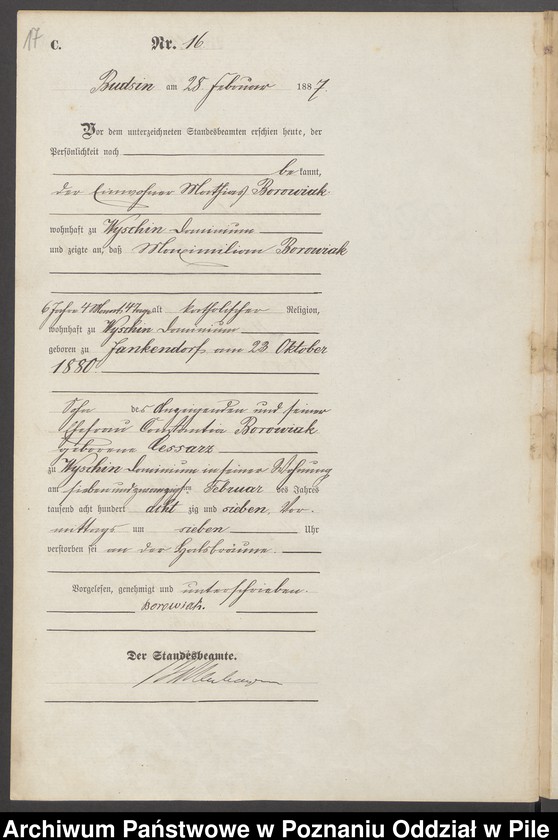 17
C. Nr. 16
Budsin am 28 Februar 1887.
Vor dem unterzeichneten Standesbeamten erschien heute, der
Persönlichkeit nach
bekannt,
der Einwohner Mathias Borowiak
wohnhaft zu Wyschin Dominium
und zeigte an, daß Maximilian Borowiak
6 Jahre 4 Monate alt katholischer Religion,
wohnhaft zu Wyschin Dominium
geboren zu Jankendorf am 23 Oktober
1880
Sohn des Anzeigenden und seiner
Ehefrau Constantia Borowiak
geborene Cessarz
zu Wyschin Dominium in seiner Wohnung
am siebenundzwanzigsten Februar des Jahres
tausend acht hundert acht zig und sieben, Vor-
mittags um sieben Uhr
verstorben sei an der Halsbräune.
Vorgelesen, genehmigt und unterschrieben.
Borowiak.
Der Standesbeamte.
Archiwum Państwowe w Poznaniu Oddział w Pile